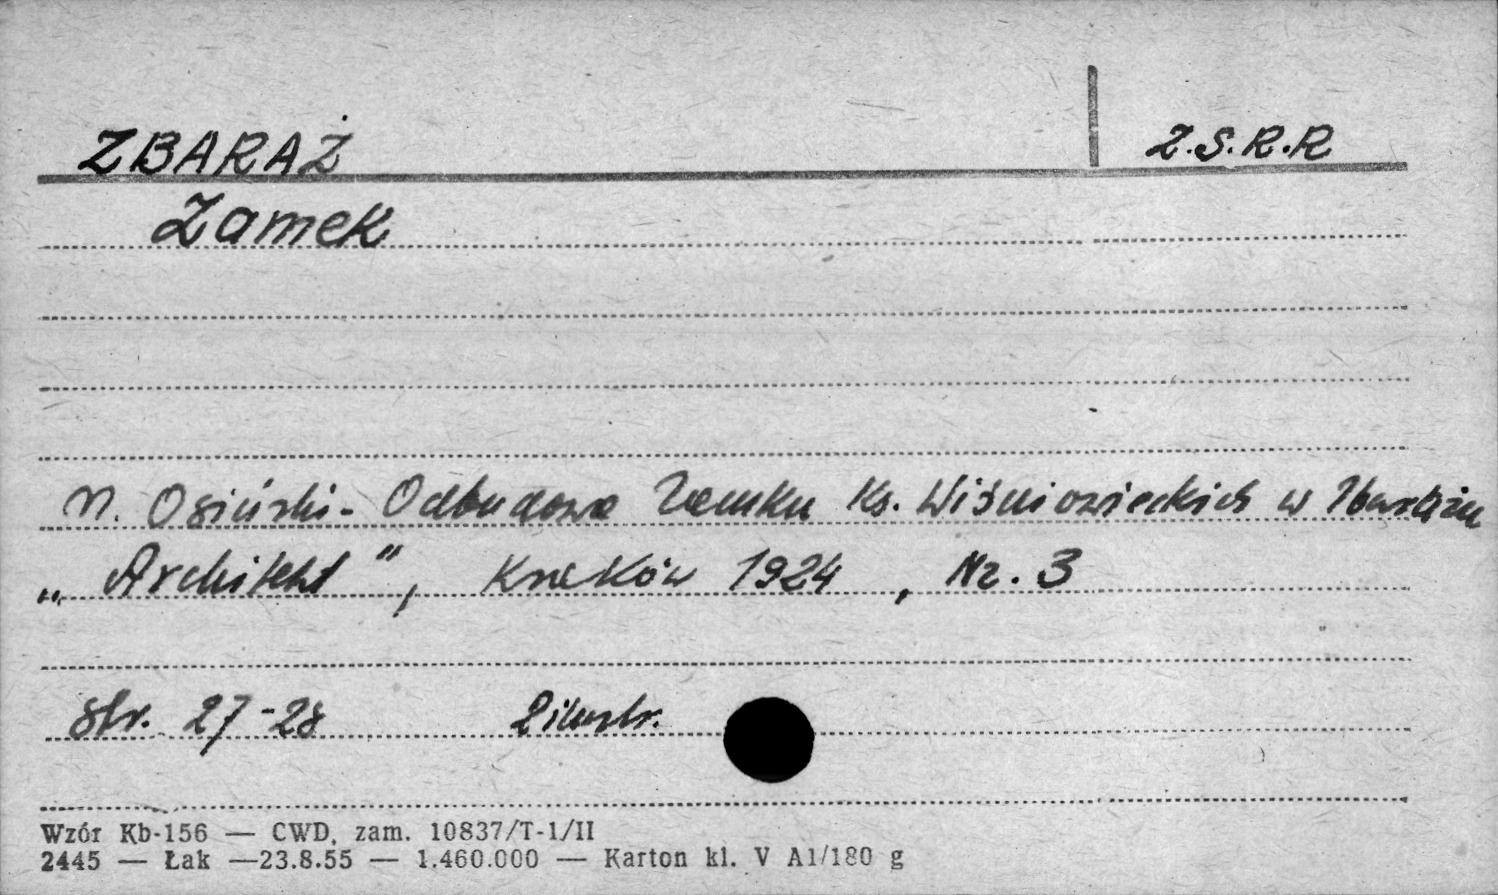 ZBARAŻ
Z.S.R.R
Zamek
M. Osiński - Odbudowa Zamku Ks. Wiśniowieckich w Zbarażu
„Architekt", Kraków 1924, Nr. 3
str. 27-28 2 ilustr.
Wzór Kb-156 — CWD, zam. 10837/T-1/II
2445 — Łak —23.8.55 — 1.460.000 — Karton kl. V A1/180 g